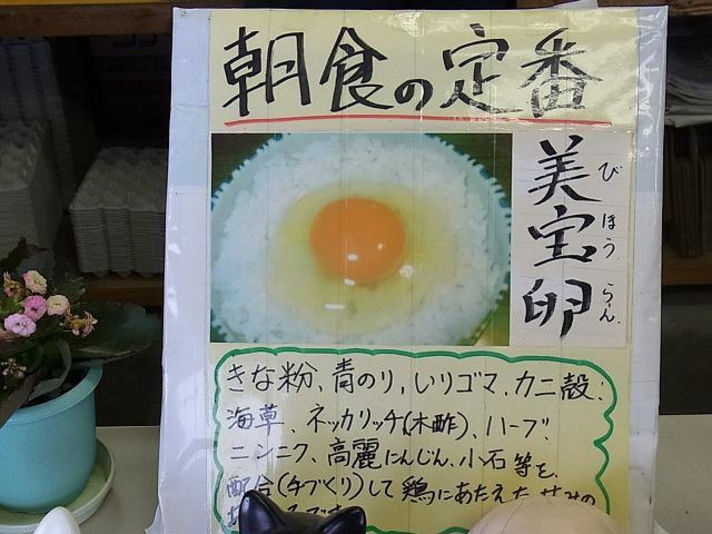 朝食の定番
美宝卵
びほうらん
きな粉、青のり、いりゴマ、カニ殻、
海草、ネッカリッチ(木酢)、ハーブ、
ニンニク、高麗にんじん、小石等を、
配合(手づくり)して鶏にあたえた